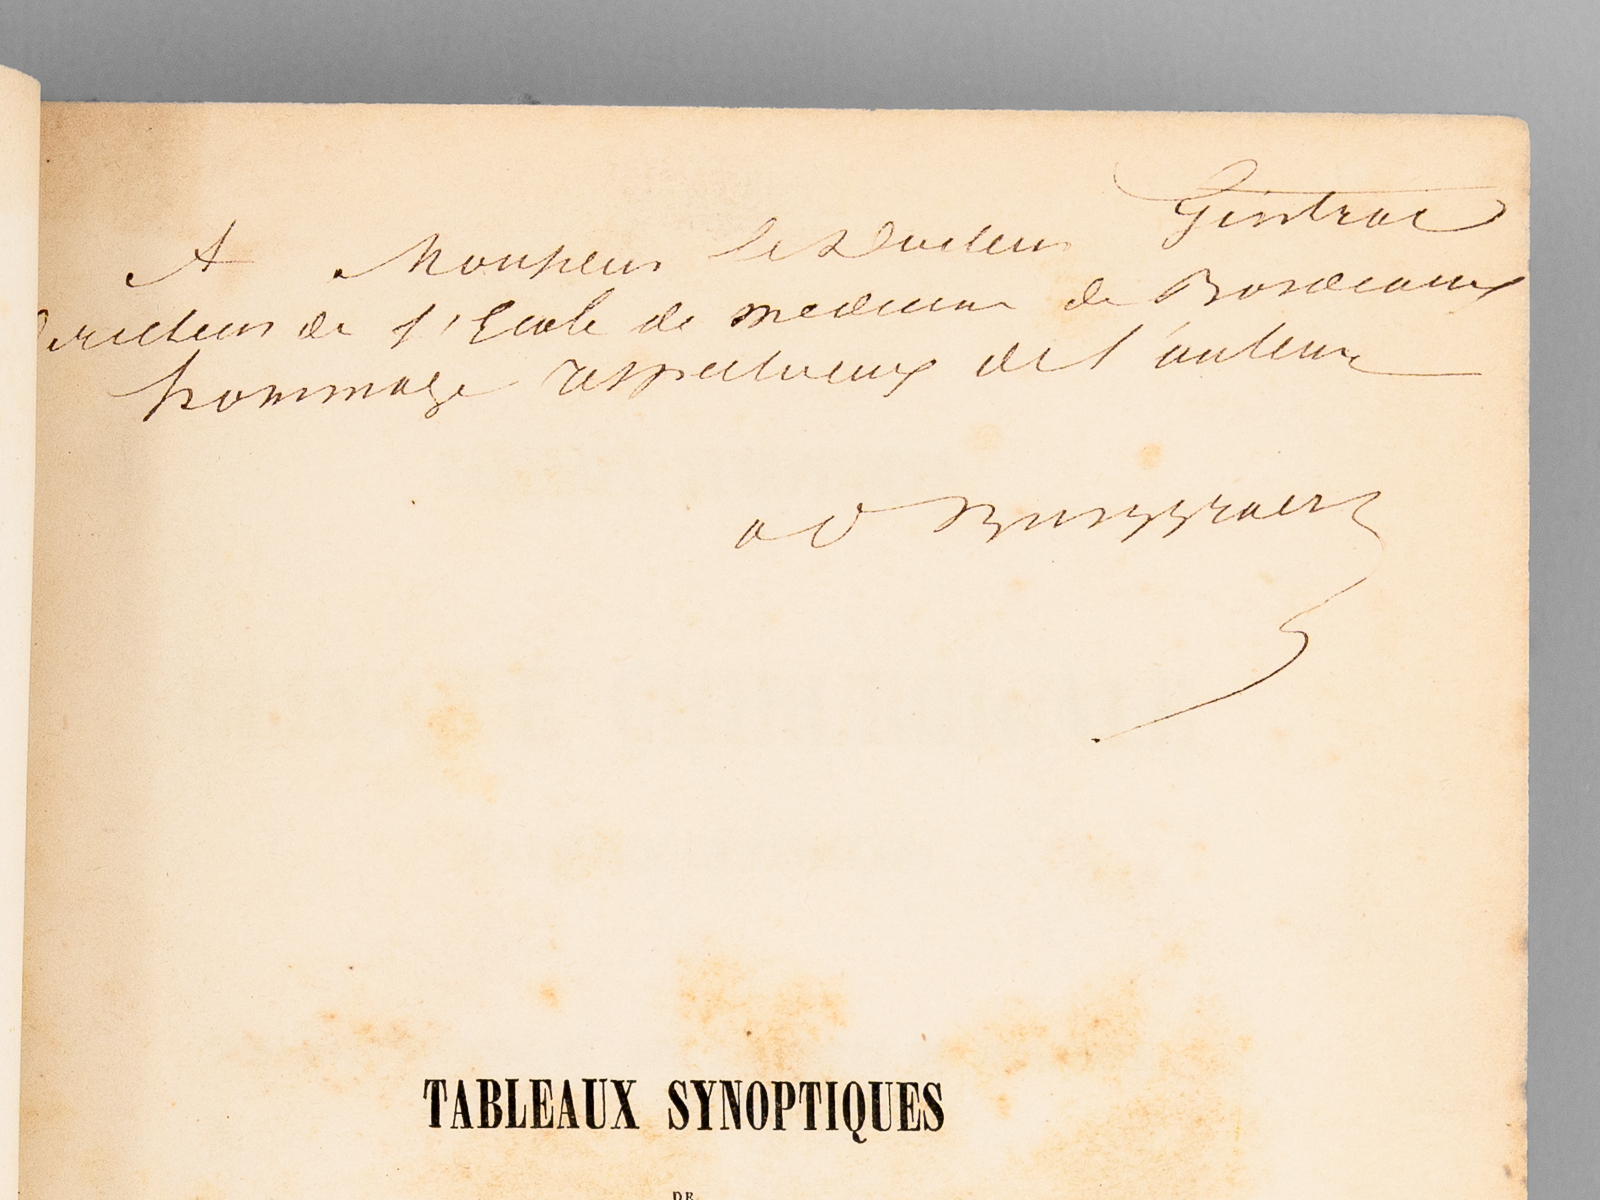 A Monsieur le Docteur Gintrac
Directeur de l'Ecole de medecine de Bordeaux
hommage respectueux de l'auteur
ad Burggraeve
TABLEAUX SYNOPTIQUES
DE